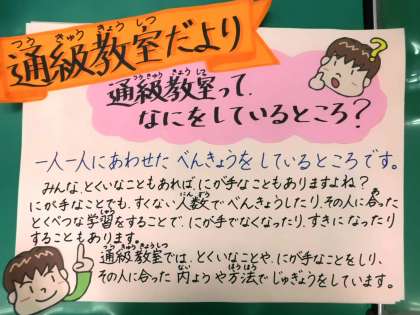 通級教室だより
通級教室って、
なにをしているところ？
一人一人にあわせた べんきょうを しているところです。
みんな、とくいなこともあれば、にが手なこともありますよね？
にが手なことでも、すくない人数でべんきょうしたり、その人に合った
とくべつな学習をすることで、にが手でなくなったり、すきになったり
することもあります。
通級教室では、とくいなことや、にが手なことをしり、
その人に合った内ようや方法でじゅぎょうをしています。